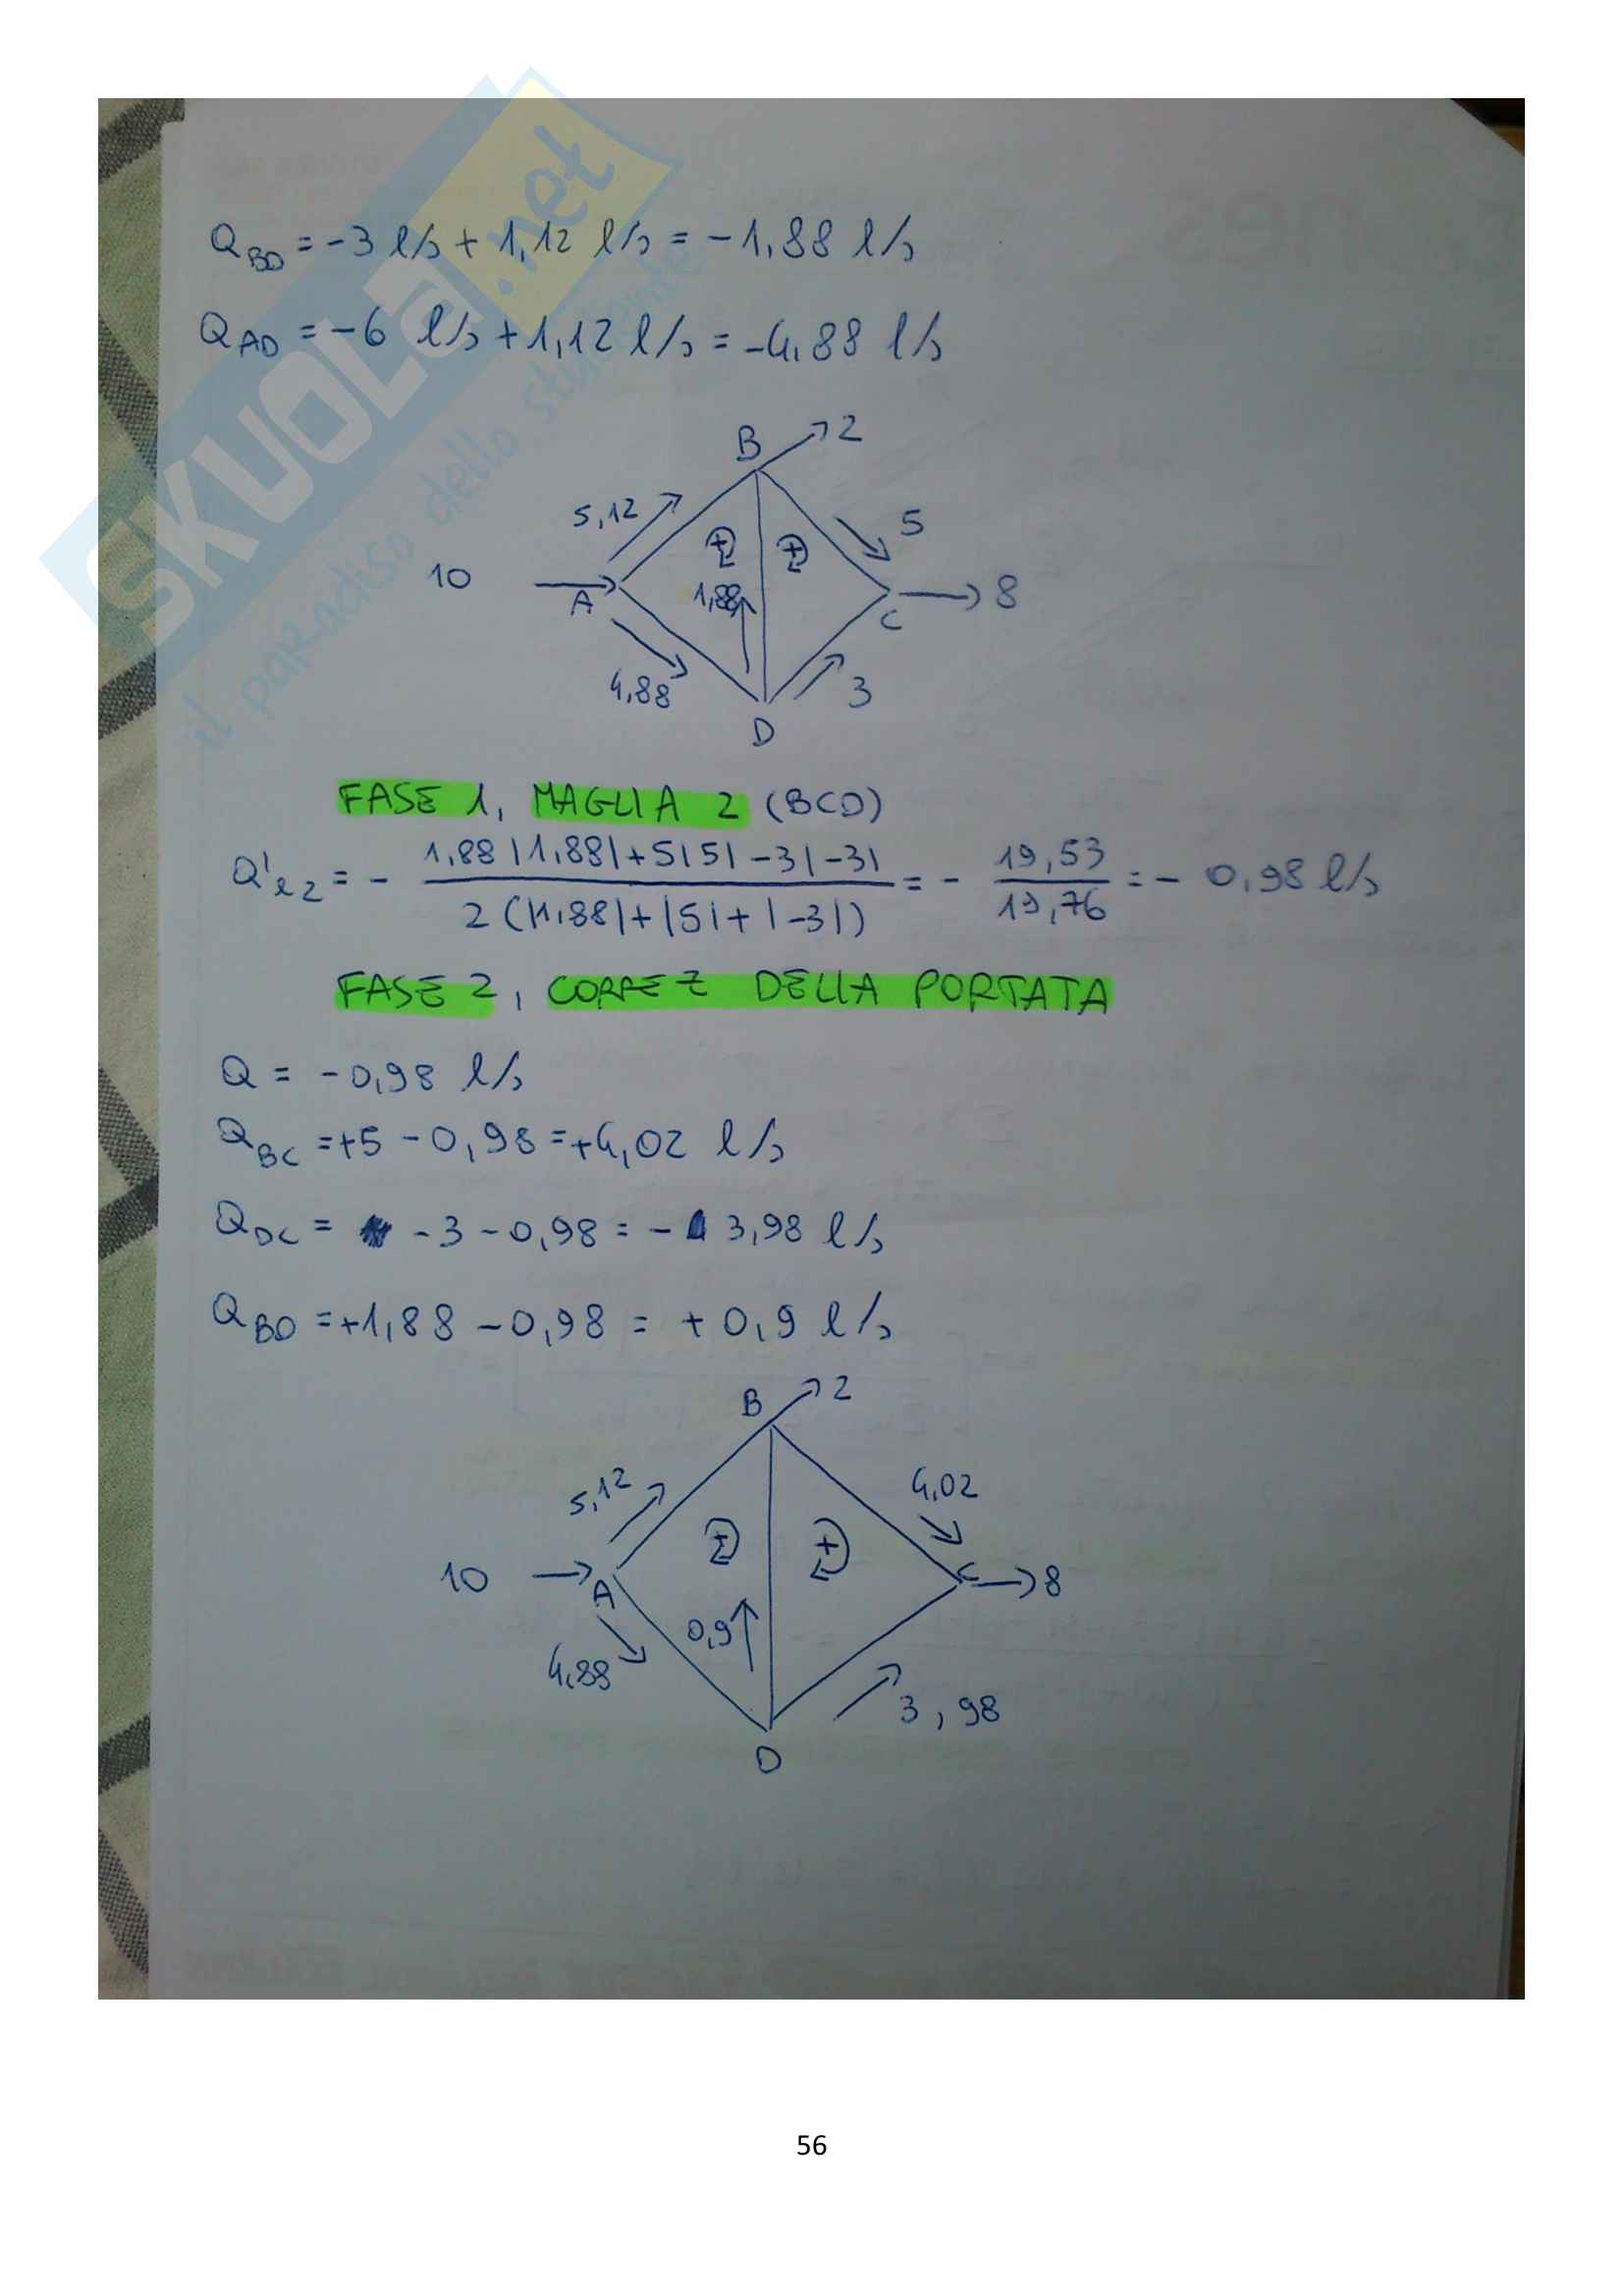 SKUOLA.net
il paradiso dello studente
Q_BD = -3 l/s + 1,12 l/s = -1,88 l/s
Q_AD = -6 l/s + 1,12 l/s = -4,88 l/s
B 2
5,12 5
10 A 1,88 C 8
4,88 3
D
FASE 1, MAGLIA 2 (BCD)
Q'_l2 = - (1,88 |1,88| + 5|5| - 3|-3|) / (2 (|1,88| + |5| + |-3|)) = - 19,53 / 19,76 = - 0,98 l/s
FASE 2, CORREZ DELLA PORTATA
Q = -0,98 l/s
Q_BC = +5 - 0,98 = +4,02 l/s
Q_DC = -3 - 0,98 = - 3,98 l/s
Q_BD = +1,88 - 0,98 = + 0,9 l/s
B 2
5,12 4,02
10 A C 8
4,88 0,9
3,98
D
56